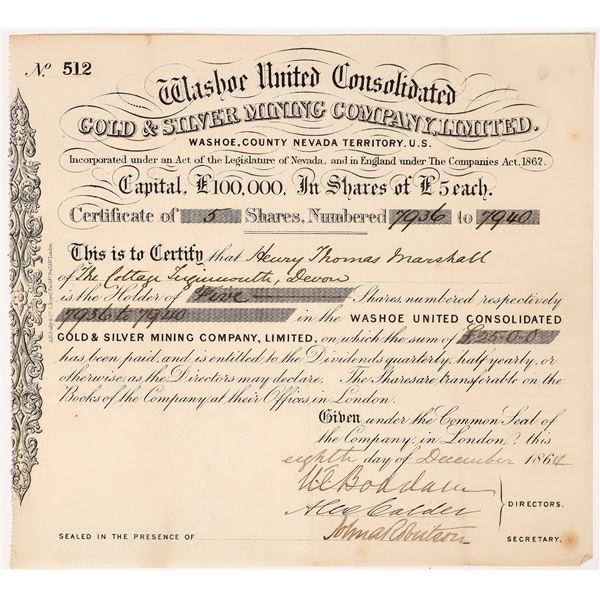 No. 512
Washoe United Consolidated
GOLD & SILVER MINING COMPANY, LIMITED.
WASHOE, COUNTY NEVADA TERRITORY. U.S.
Incorporated under an Act of the Legislature of Nevada, and in England under The Companies Act, 1862.
Capital, £100,000, In Shares of £5 each.
Certificate of 5 Shares, Numbered 7936 to 7940
This is to Certify that Henry Thomas Marshall
of The Cottage Teignmouth, Devon
is the Holder of Five Shares, numbered respectively
7936 to 7940 in the WASHOE UNITED CONSOLIDATED
GOLD & SILVER MINING COMPANY, LIMITED, on which the sum of £25-0-0
has been paid, and is entitled to the Dividends quarterly, half yearly, or
otherwise, as the Directors may declare. The Shares are transferable on the
Books of the Company, at their Offices in London.
Given under the Common Seal of
the Company, in London, this
eighth day of December 1864
DIRECTORS.
Alex Calder
John A Robertson
SECRETARY.
SEALED IN THE PRESENCE OF